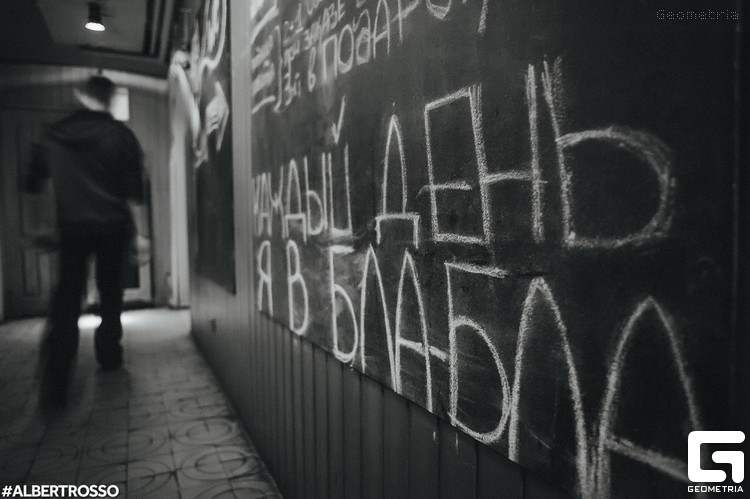 Geometria
В ПОДАРОК
КАЖДЫЙ ДЕНЬ
Я В БЛАБЛА
#ALBERTROSSO
GEOMETRIA